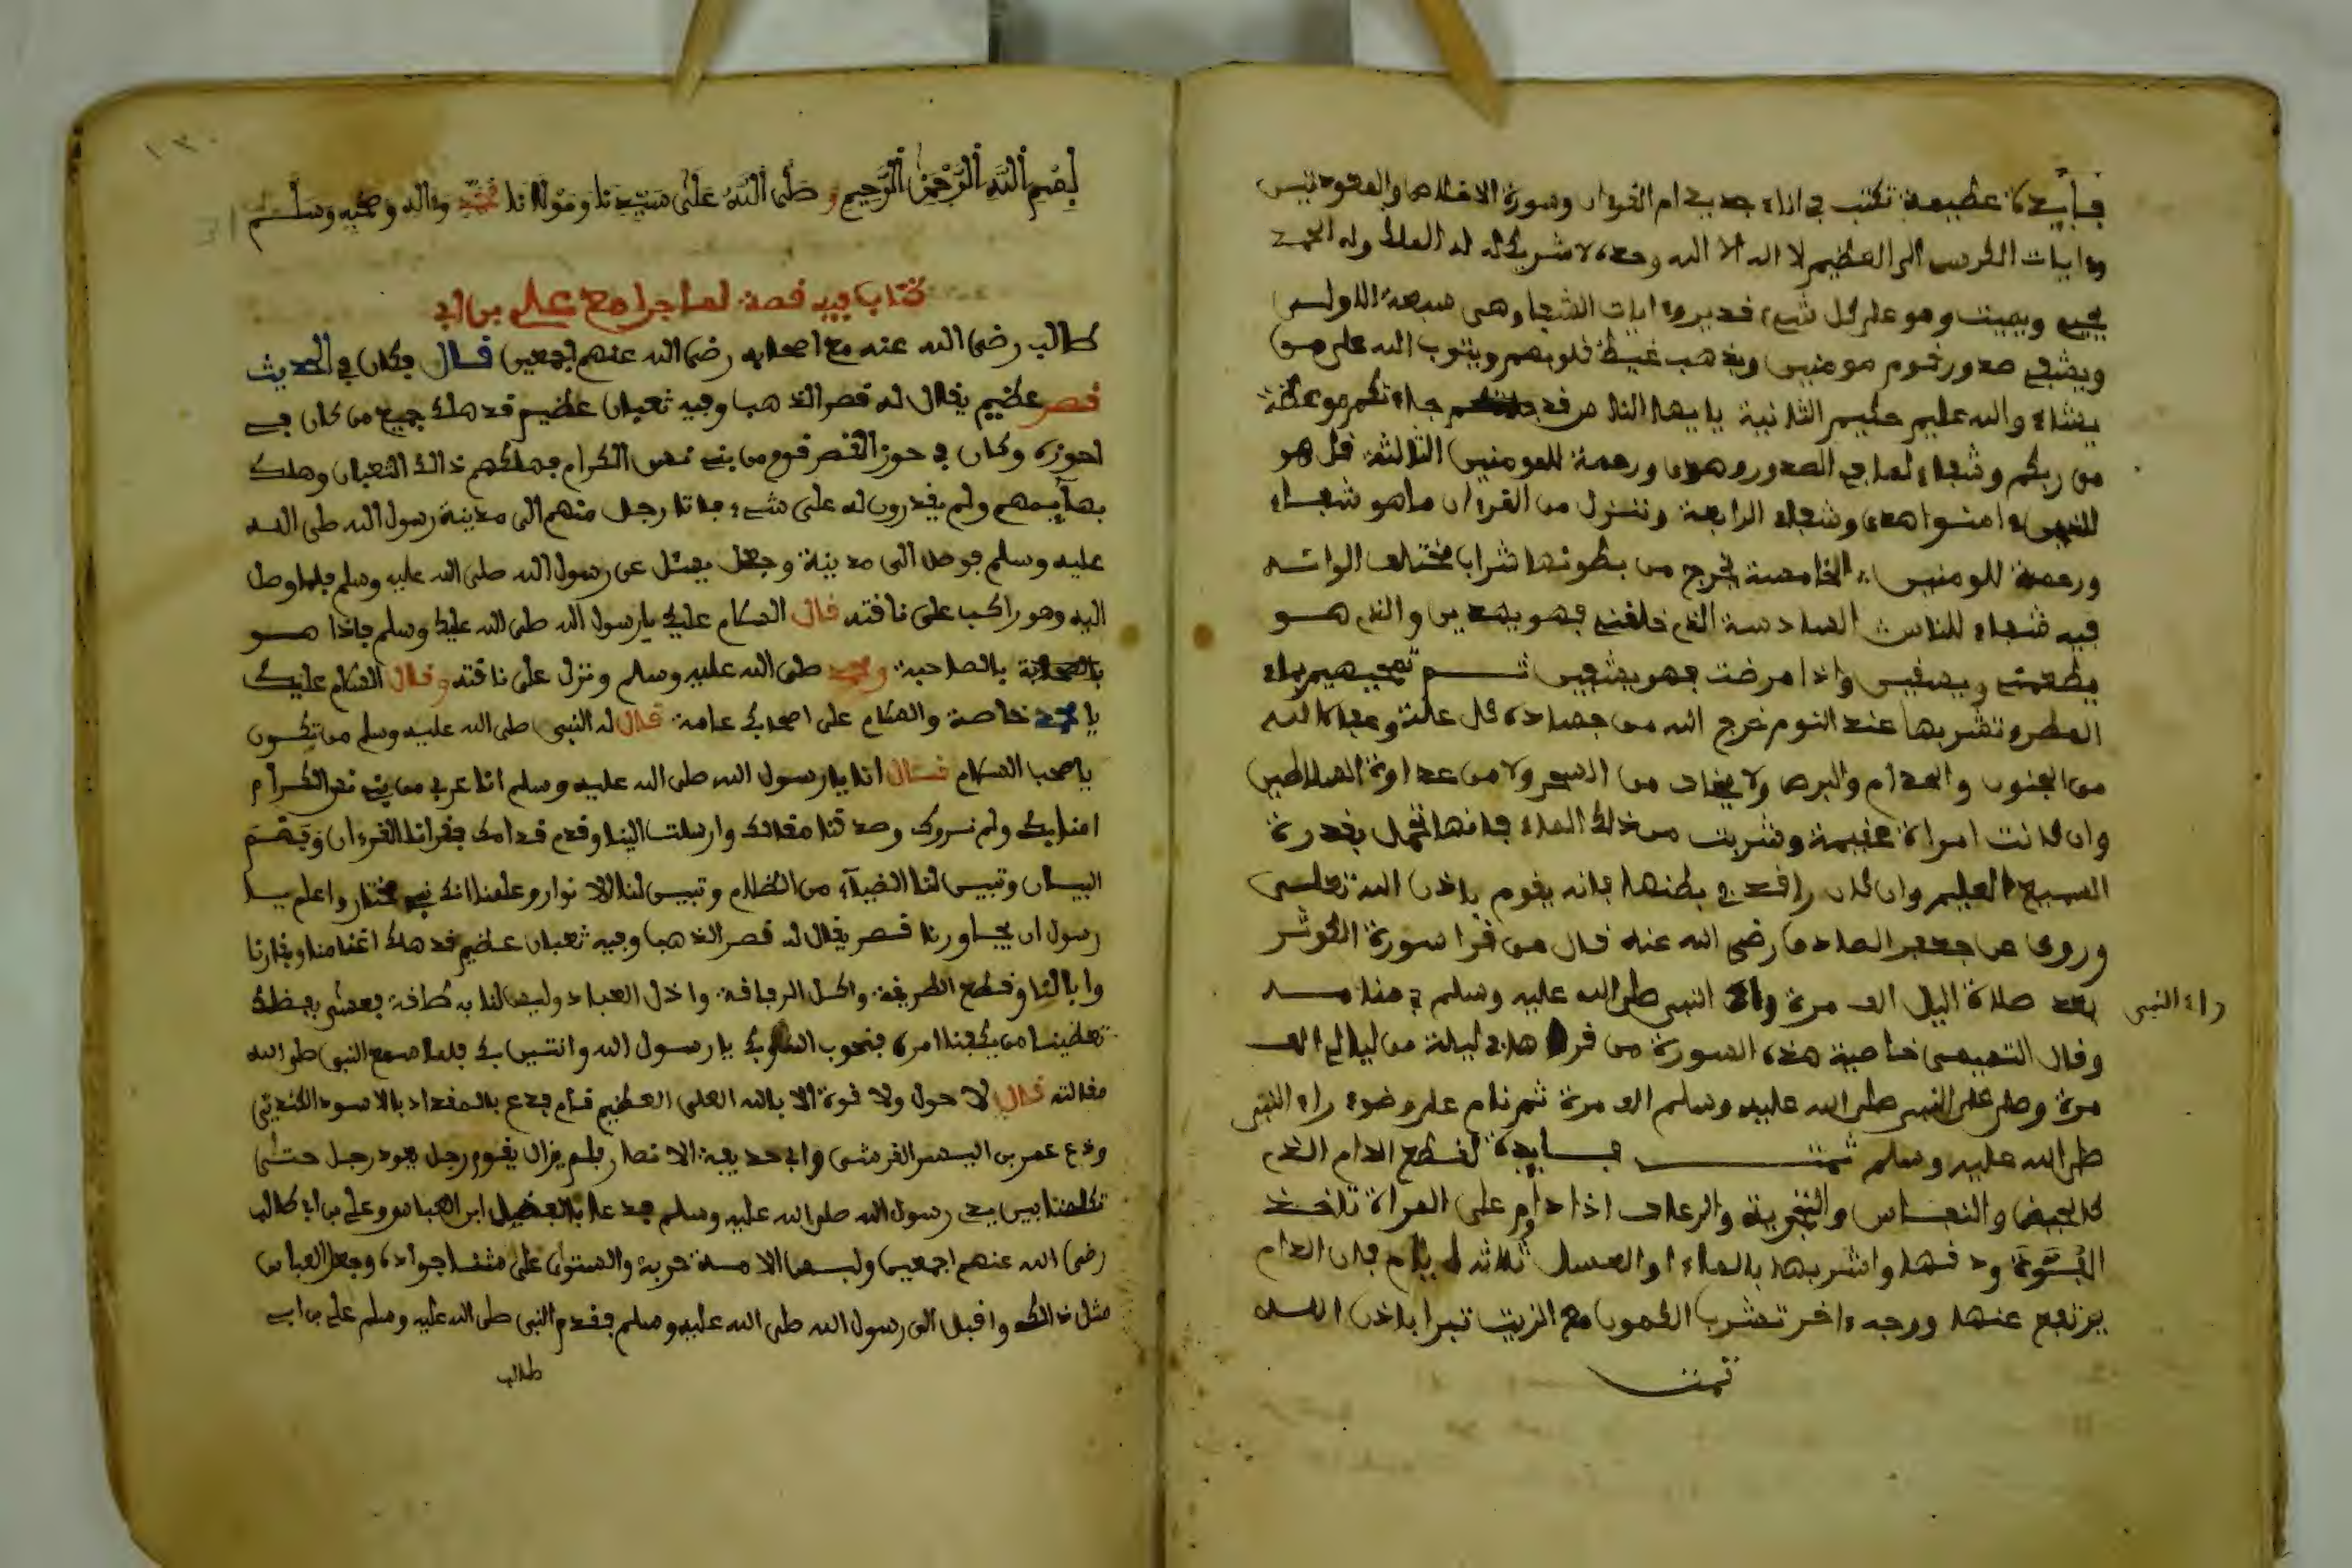 فايدة عظيمة تكتب في اناء جديد ام القرءان وسورة الاخلاص والمعوذتين
وءايات الكرسي الى العظيم لا اله الا الله وحده لا شريك له له الملك وله الحمد
يحيي ويميت وهو على كل شيء قدير وءايات الشفا وهي سبعة الاولى
ويشفي صدور قوم مومنين ويذهب غيظ قلوبهم ويتوب الله على من
يشاء والله عليم حكيم الثانية يايها الناس قد جاءتكم موعظة
من ربكم وشفاء لما في الصدور وهدى ورحمة للمومنين الثالثة قل هو
للذين ءامنوا هدى وشفاء الرابعة وننزل من القرءان ما هو شفاء
ورحمة للمومنين الخامسة يخرج من بطونها شراب مختلف الوانه
فيه شفاء للناس السادسة الذي خلقني فهو يهدين والذي هو
يطعمني ويسقين واذا مرضت فهو يشفين ثم تمحيهم بماء
المطر وتشربها عند النوم خرج الله من جساده كل علة وعافاه الله
من الجنون والجذام والبرص ولا يخاف من السحر ولا من عداوة السلاطين
وان كانت امراة عقيمة وشربت من ذلك الماء فانها تحمل بقدرة
السميع العليم وان كان راقد في بطنها فانه يقوم باذن الله تعلى
وروى عن جعفر الصادق رضي الله عنه قال من قرا سورة الكوثر
بعد صلاة اليل الف مرة النبي صلى الله عليه وسلم في منامه
راء النبي
وقال التميمي خاصية هذه السورة من قراها في ليلة من ليالي الف
مرة وصلى على النبي صلى الله عليه وسلم الف مرة ثم نام على وضوء راء النبي
صلى الله عليه وسلم تمت فايدة لقطع الدام الذي
كالحيض والنفاس والرعاف اذا دام على المراة تاخذ
ودقها واشربها بالماء او العسل ثلاثة ايام فان الدام
يرتفع عنها ووجه ءاخر تشرب الكمون مع الزيت تبرا باذن الله
تمت
بسم الله الرحمن الرحيم وصلى الله على سيدنا ومولانا محمد وءاله وصحبه وسلم
كتاب فيه قصة لما جرا مع علي بن ابي
طالب رضي الله عنه مع اصحابه رضي الله عنهم اجمعين قال فكان في الحديث
قصر عظيم يقال له قصر الذهب وفيه ثعبان عظيم قد هلك جميع من كان في
احوزه وكان في حوز القصر قوم من بني الكرام فهلكهم ذالك الثعبان وهلك
بهايمهم ولم يقدرون له على شيء فاتا رجل منهم الى مدينة رسول الله صلى الله
عليه وسلم فوصل الى مدينة وجعل يسئل عن رسول الله صلى الله عليه وسلم فلما وصل
اليه وهو راكب على ناقته قال السلام عليك يارسول الله صلى الله عليك وسلم فاذا هو
بالصاحبة ومحمد صلى الله عليه وسلم ونزل على ناقته وقال السلام عليك
يا محمد خاصة والسلام على اصحابك عامة قال له النبي صلى الله عليه وسلم من تكون
ياصحب السلام قال انا يارسول الله صلى الله عليه وسلم انا عربي من بني الكرام
امنا بك ولم نروك وصدقنا مقالك وارسلت الينا وقدم قدامك فقرانا القرءان
البيان وتبين لنا الضياء من الظلام وتبين لنا الانوار وعلمنا انك نبي مختار واعلم يا
رسول ان يجاورنا قصر يقال له قصر الذهب وفيه ثعبان عظيم قد هلك اغنامنا وبقارنا
وابالنا وقطع الطريقة واكل الرفاقة واذل العباد وليس لنا به طاقة فعسى بفظلك
تعطينا من يكفينا امره يارسول الله فلما سمع النبي صلى الله
مقالته قال لا حول ولا قوة الا بالله العلي العظيم قام فدع بالمقداد بالاسود الكندي
ودع عمر بن القرشي وابي حذيفة الانصار ولم يزال يقوم رجل بعد رجل حتى
بين يدي رسول الله صلى الله عليه وسلم فدعا بالفضيل ابن العباس وعلي بن ابي طالب
رضي الله عنهم اجمعين ولبس الامة حربة واستوى على متن جواده وجعل العباس
مثل ذالك واقبل الى رسول الله صلى الله عليه وسلم فقدم النبي صلى الله عليه وسلم علي بن ابي
طالب